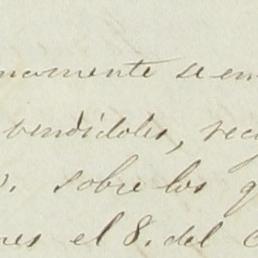 namente se em
bendidoles, rec
. sobre los q
res el 8. del C